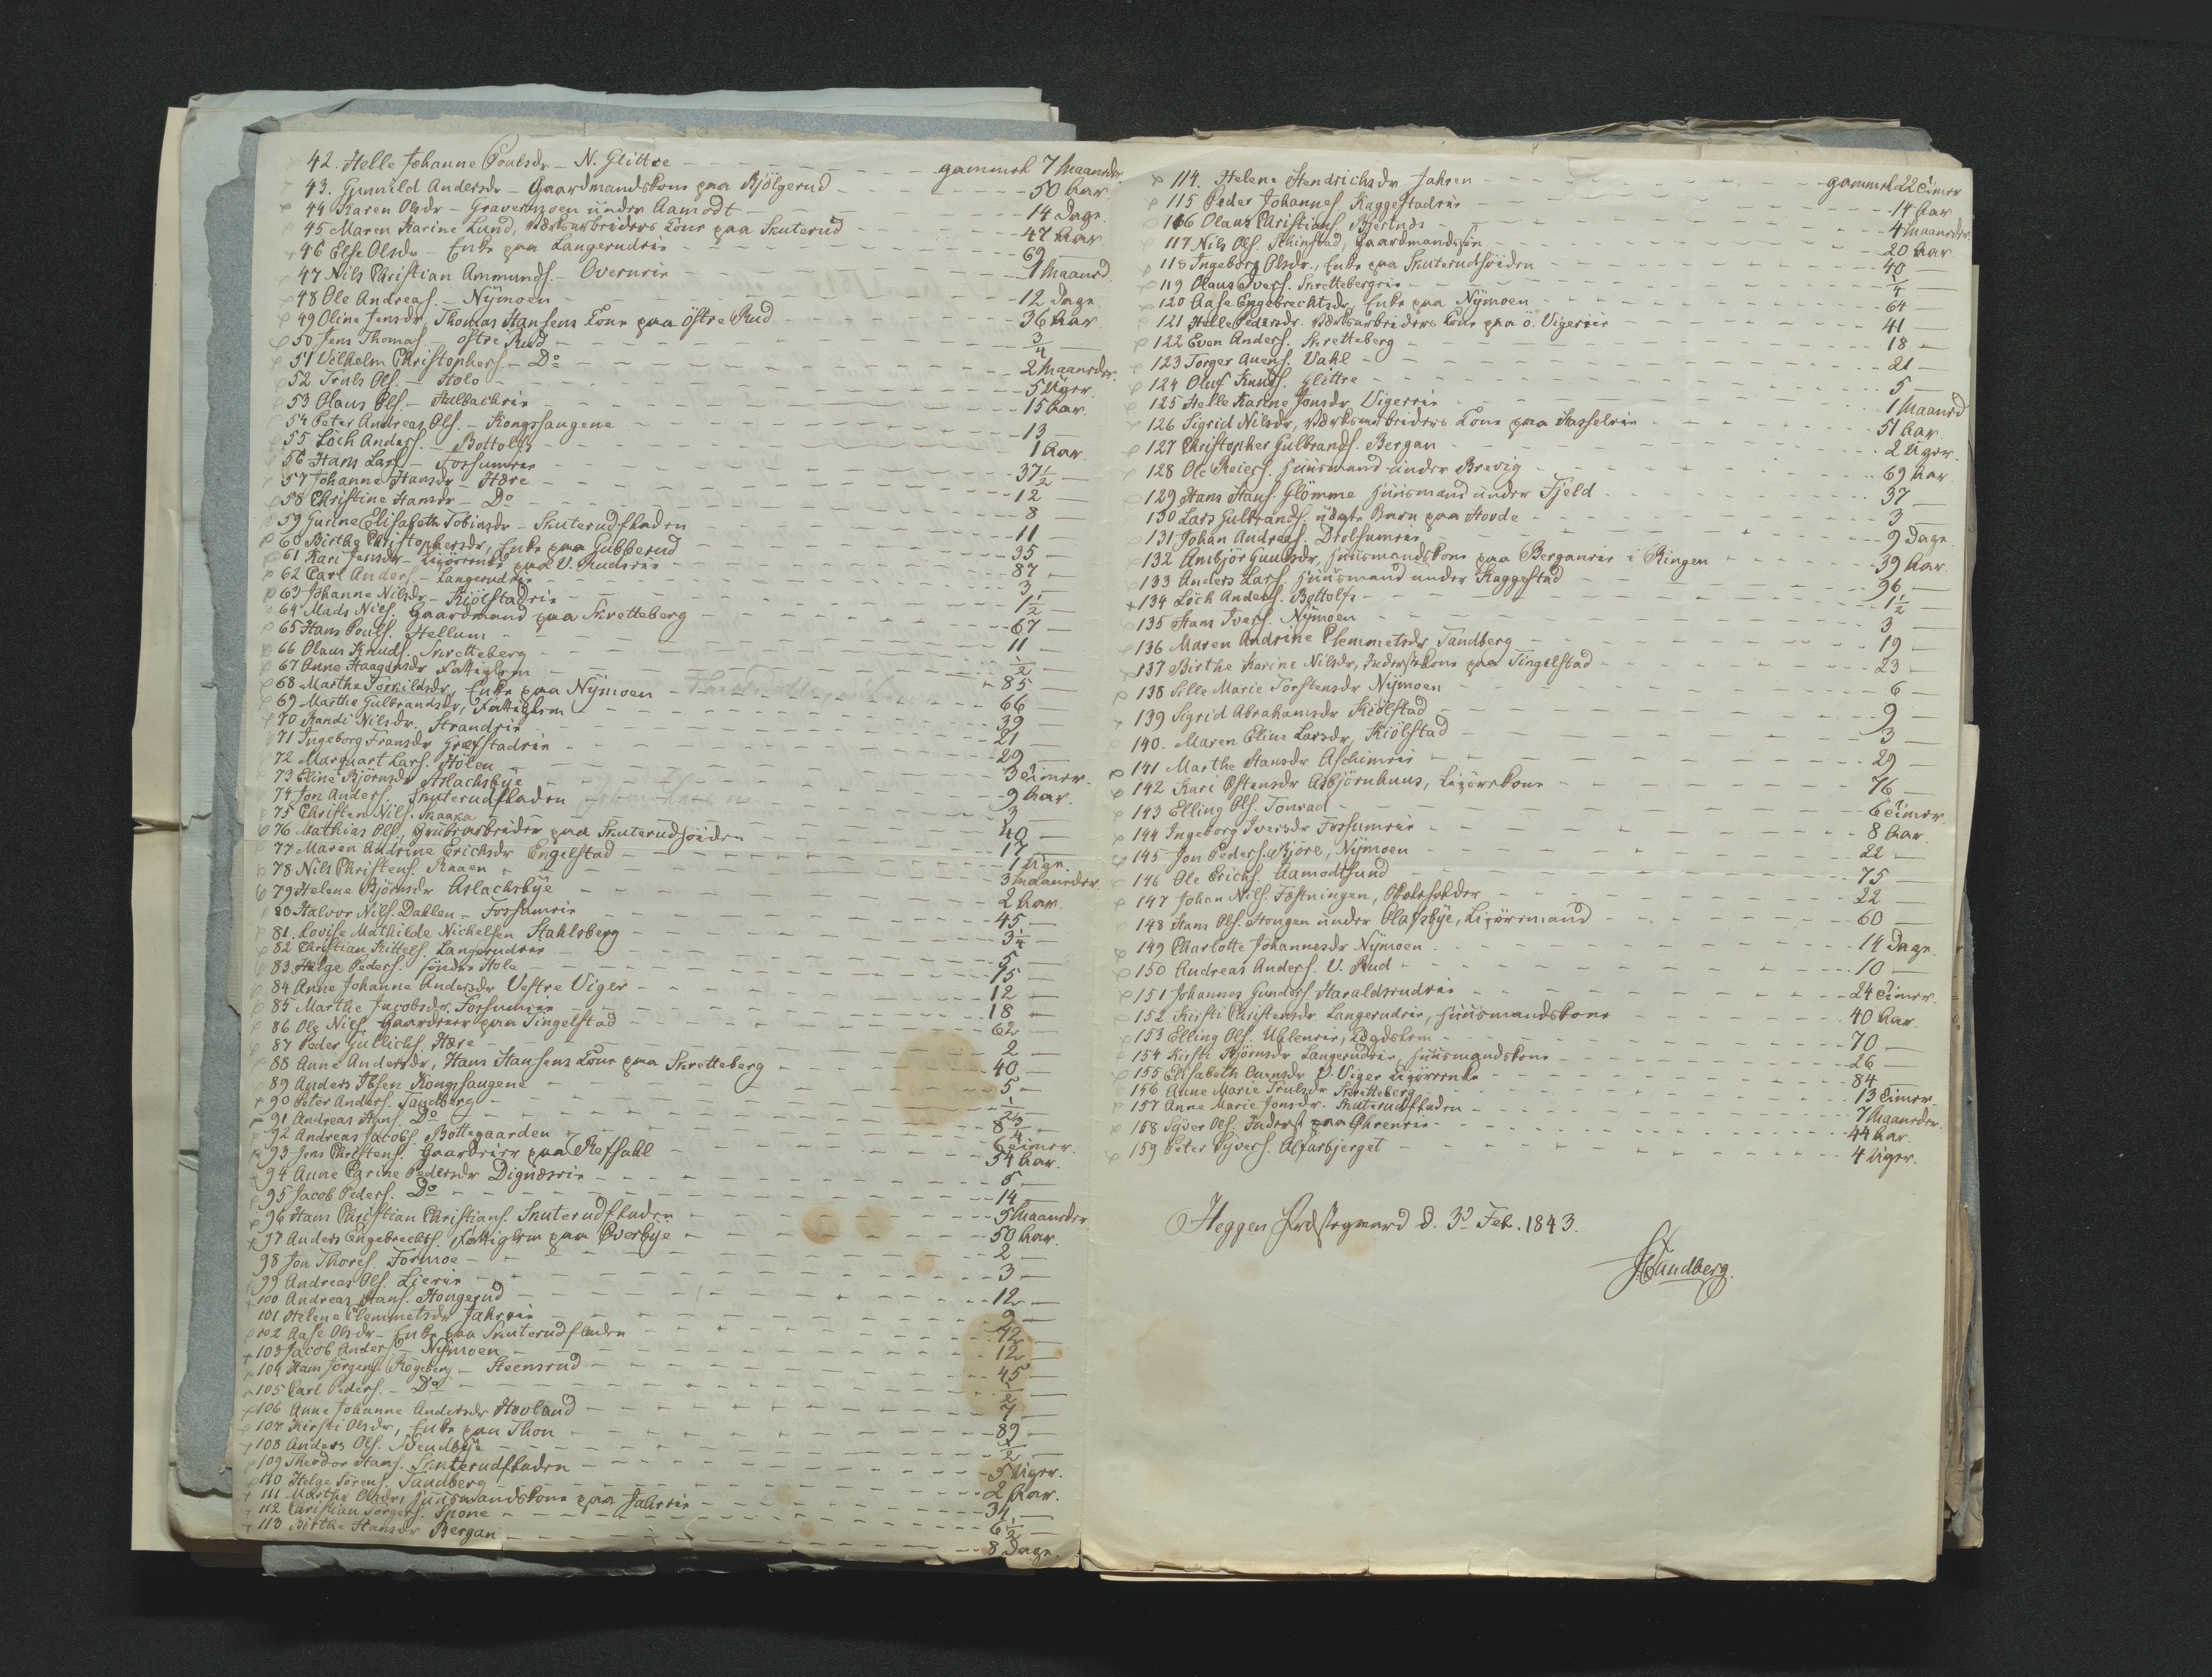 42. Helle Johanne Poulsdr - N. Glittre - gammel 7 Maaneder
43. Gunnild Andersdr - Gaardmandskone paa Bjölgerud - 50 Aar
44 Karen Olsdr - Gravermoen under Aamodt - 14 Dage
45 Maren Karine Lund, Værksarbeiders Kone paa Skuterud - 47 Aar
46 Else Olsdr - Enke paa Langerudeie - 69
47 Nils Christian Ammunds. - Overneie - 1 Maaned
48 Ole Andreas. - Nÿmoen - 12 Dage
49 Oline Jensdr, Thomas Hansens Kone paa östre Rud - 36 Aar
50 Jens Thomas. östre Rud - 3/4 -
51 Vilhelm Christophers. - Do - 2 Maaneder.
52 Truls Ols. - Holo - 5 Uger.
53 Olaus Ols. - - 15 Aar.
54 Peter Andreas Ols. - Kongssaugene - 13 -
55 Löch Anders. - Bottolfs - 1 Aar.
56 Hans Lars. - Fossumeie - 37 1/2 -
57 Johanne Hansdr - Hære - 12 -
58 Christine Hansdr - Do - 8
59 Gurine Elisabeth Tobiasdr - Skuterudfladen - 11
60 Birthe Christophersdr, Enke paa Gubberud - 35 -
61 Kari Jensdr - Legdeenke paa V. Rudseie - 87 -
62 Carl Anders. - Langerudeie - 3 -
63 Johanne Nilsdr - Kiölstadeie - 1 1/2 -
64 Mads Nils. Gaardmand paa Skretteberg - 67 -
65 Hans Pouls. Hellum - 11 -
66 Olaus Knuds. Skretteberg - 1/2 -
67 Anne Haagensdr Fattiglem - 85 -
68 Marthe Torkildsdr, Enke paa Nÿmoen - 66 -
69 Marthe Gulbrandsdr, Fattiglem - 39 -
70 Randi Nilsdr. Strandeie - 21 -
71 Ingeborg Fransdr Græfstadeie - 29 -
72 Marquart Lars. Hölen - 3 Timer.
73 Eline Björnsdr Aslachsbÿe - 9 Aar.
74 Jon Anders. Skuterudfladen - 3 -
75 Christen Nils. Skaara - 40 -
76 Mathias Ols., Grubearbeider paa Skuterudhöiden - 17 -
77 Maren Andrine Erichsdr Engelstad - 1 Uge
78 Nils Christens. Raaen - 3 Maaneder
79 Helene Björnsdr Aslachsbÿe - 2 Aar.
80 Halvor Nils. Dahlen - Fossumeie - 45 -
81. Lovise Mathilde Nickelsen Stahlsberg - 3 1/4 -
82 Christian Kittels. Langerudeie - 5 -
83 Helge Peders. söndre Hole - 15 -
84 Anne Johanne Andersdr Vestre Viger - 12 -
85 Marthe Jacobsdr. Fossumeie - 18 -
86 Ole Nils. Gaardeier paa Tingelstad - 62 -
87 Peder Gullichs. Hære - 2 -
88 Anne Andersdr, Hans Hansens Kone paa Skretteberg - 40 -
89 Anders Ibsen Kongssaugene - 5 -
90 Peter Anders. Tandberg - 1/2 -
91 Andreas Hans. Do -
92 Andreas Jacobs. Bottegaarden -
93 Jens Christens. Gaardeier paa Refsahl - 54 Aar.
94 Anne Carine Pedersdr Dignæseie - 5 -
95 Jacob Peders. Do - 14 -
96 Hans Christian Christians. Skuterudfladen - 5 Maaneder
97 Anders Engebrechts. Fattiglem paa Overbÿe - 50 Aar.
98 Jon Thores. Formoe - 2 -
99 Andreas Ols. Lieeie - 3 -
100 Andreas Hans. Hongerud - 12 -
101 Helene Clemmetsdr Jahreie - 9 -
102 Aase Olsdr - Enke paa Skuterudfladen - 42 -
103 Jacob Anders. - Nÿmoen - 12 -
104 Hans Jörgens. Rögeberg - Steensrud - 45 -
105 Carl Peders. - Do - 1/2 -
106 Anne Johanne Andersdr Hovland - 7 -
107 Kirsti Olsdr, Enke paa Thon - 89 -
108 Anders Ols. Svendbÿe - 1/2 -
109 Theodor Hans. Skuterudfladen - 5 Uger.
110 Helge Sörens. Tandberg - 2 Aar.
111 Marthe Olsdr, Huusmandskone paa Jahreie - 34 -
112 Christian Torgers. Spone - 6 1/2 -
113 Birthe Hansdr Bergan - 8 Dage.
114. Helene Hendrichsdr Jahren - gammel 22 Timer
115 Peder Johannes. Kaggestadeie - 14 Aar
116 Olaus Christians. Bjertnæs - 4 Maaneder.
117 Nils Ols. Skinstad, Gaardmandssön - 20 Aar
118 Ingeborg Olsdr., Enke paa Skuterudhöiden - 40 -
119 Olaus Ivers. Skrettebergeie - 1/4 -
120 Aase Engebrechtsdr, Enke paa Nÿmoen - 64 -
121 Helle Pedersdr. Værksarbeiders Kone paa ö. Vigereie - 41 -
122 Even Anders. Skretteberg - 18 -
123 Torger Auens. Vahl - 21 -
124 Oluf Knuds. Glittre - 5 -
125 Helle Karine Jonsdr Vigereie - 1 Maaned
126 Sigrid Nilsdr, Værksarbeiders Kone paa Hasseleie - 51 Aar.
127 Christopher Gulbrands. Bergan - 2 Uger.
128 Ole Reiers. Huusmand under Brevig - 69 Aar
129 Hans Hans. Glömme Huusmand under Fjeld - 37 -
130 Lars Gulbrands. uægte Barn paa Hovde - 3 -
131 Johan Andreas. Drolsumeie - 9 Dage
132 Ambjör Gundsdr, Huusmandskone paa Berganeie i Ringen - 39 Aar.
133 Anders Lars. Huusmand under Kaggestad - 96 -
134 Löch Anders. Bottolfs - 1 1/2 -
135 Hans Ivers. Nÿmoen - 3 -
136 Maren Andrine Clemmetsdr Tandberg - 19 -
137 Birthe Karine Nilsdr, Inderstkone paa Tingelstad - 23 -
138 Sille Marie Torstensdr Nÿmoen - 6 -
139 Sigrid Abrahamsdr Kiölstad - 9 -
140. Maren Eline Larsdr, Kiölstad - 3 -
141 Marthe Hansdr Aschimeie - 29 -
142 Kari Ostensdr Asbjörnhuus, - 76 -
143 Elling Ols. Tonrad - 6 Timer.
144 Ingeborg Iversdr Fossumeie - 8 Aar
145 Jon Peders. Björe, Nÿmoen - 22 -
146 Ole Erichs. Aamodtsund - 75
147 Johan Nils. Fæstningen, Skoleholder - 22 -
148 Hans Ols. Hougen under Olafsbÿe, - 60 -
149 Charlotte Johannesdr Nÿmoen - 14 Dage.
150 Andreas Anders. V. Rud - 10 -
151 Johannes Gunders. Haraldsrudeie - 24 Timer.
152 Kirsti Christensdr Langerudeie, Huusmandskone - 40 Aar.
153 Elling Ols. Ublereie, Lægdslem - 70 -
154 Kirsti Björnsdr Langerudeie, Huusmandskone - 26 -
155 Elisabeth Ouensdr V. Viger - 84
156 Anne Marie Trulsdr Skretteberg - 13 Timer
157 Anne Marie Jensdr. Skuterudfladen - 7 Maaneder.
158 Syver Ols. Inderst paa Ihreneie - 44 Aar.
159 Peter Syvers. Alfarbjerget - 4 Uger.
Heggen Præstegaard d. 3d Feb. 1843.
Sundberg.